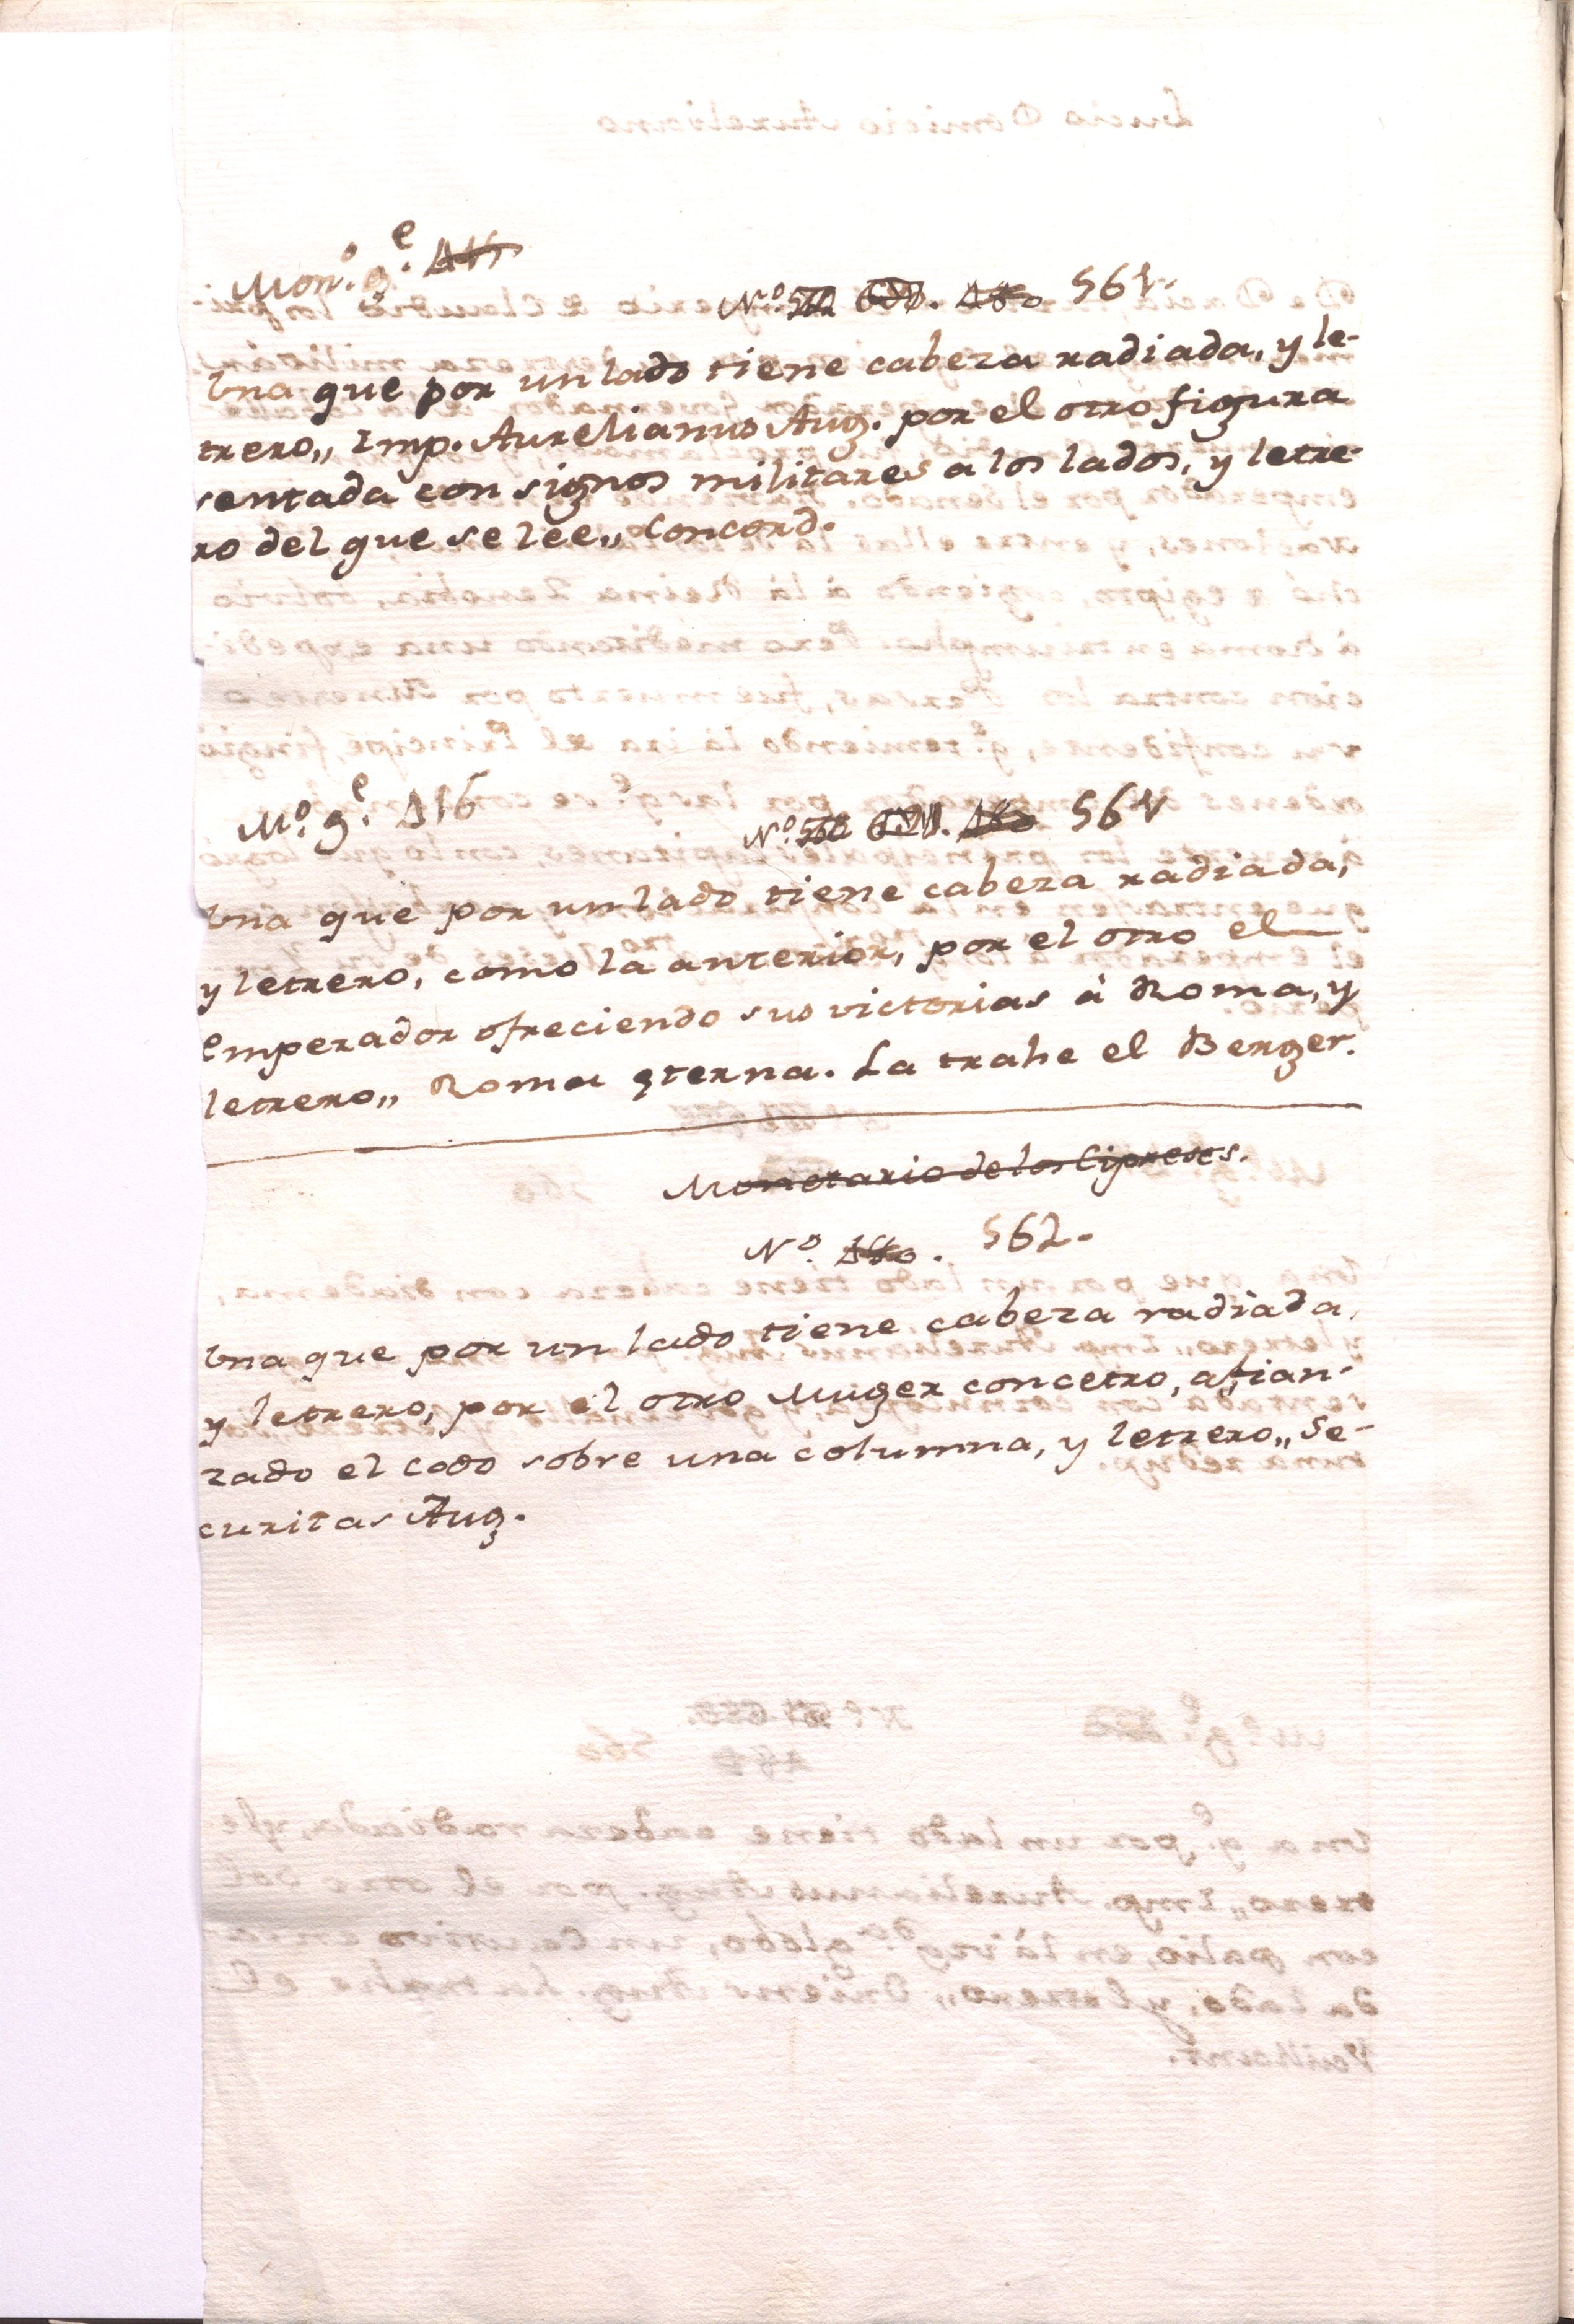 Mon.º g.e
N.º 561.
Una que por un lado tiene cabeza radiada, y le-
trero,, Imp. Aurelianus Aug. por el otro figura
sentada con signos militares a los lados, y letre-
ro del que se lee,, Concord.
M.º g.e 116
N.º 561
Una que por un lado tiene cabeza radiada,
y letrero, como la anterior, por el otro el
Emperador ofreciendo sus victorias à Roma, y
letrero,, Roma ęterna. La trahe el Berger.
Monetario de los Cipreses.
N.º 562.
Una que por un lado tiene cabeza radiada,
y letrero, por el otro Muger con cetro, afian-
zado el codo sobre una columna, y letrero,, Se-
curitas Aug.